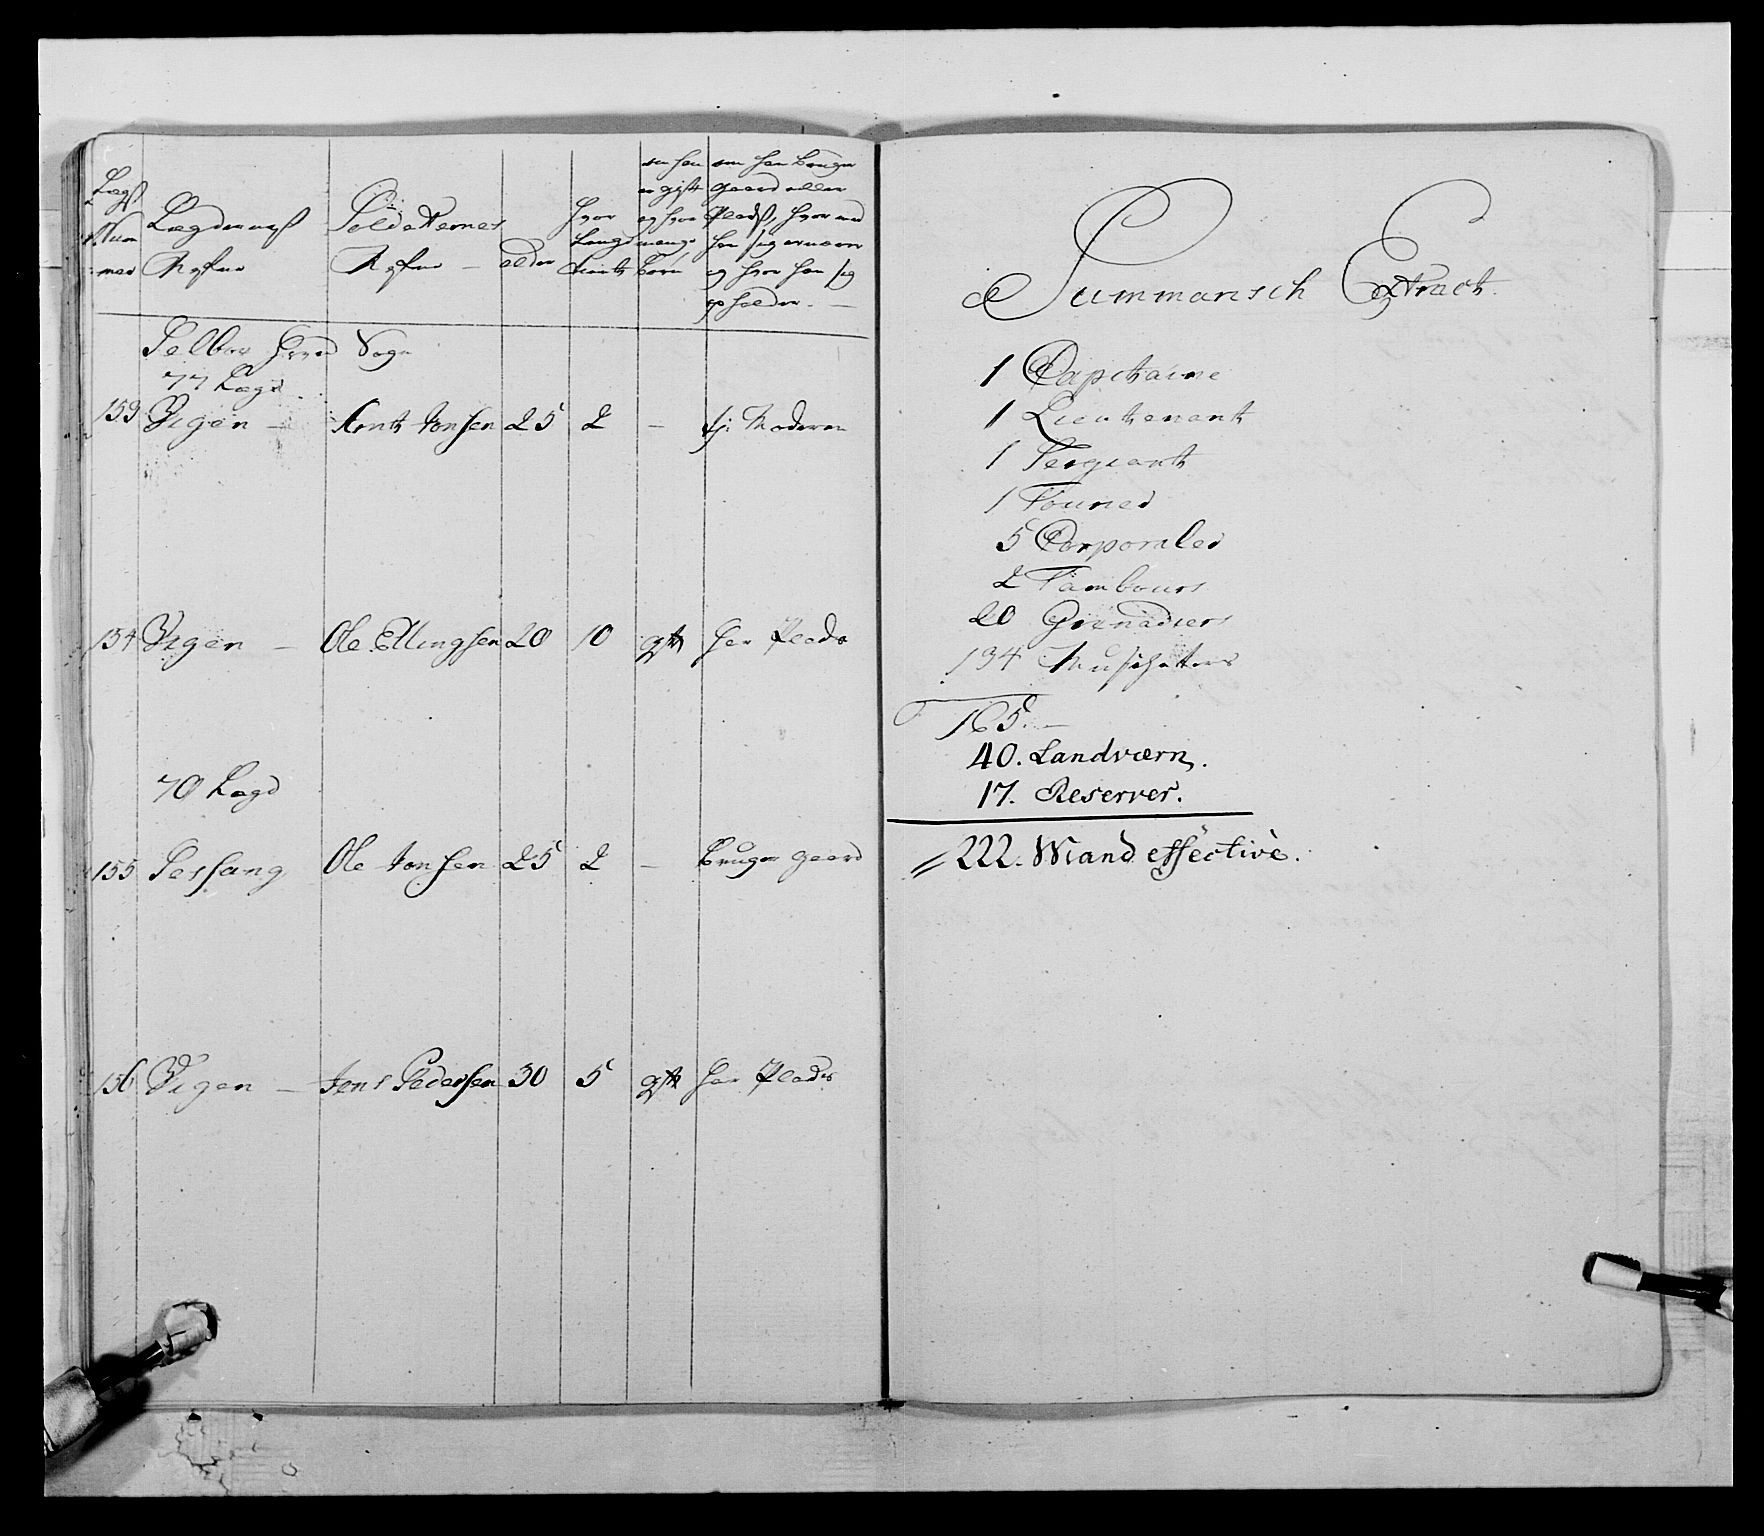 Lægs
Num
mer
Lægdernes
Nafne
Soldaternes
Nafne
alder
hvor
Længe
tient
om han
er gift
og hvor
mange
børn
om han bruger
gaard eller
Plads, hvor med
han sig ernærer
og hvor han sig
opholder
Selboe Sogn
77 Lægd
153 Vigen — Arnt Jonsen 25 2 — Moderen
154 Vigen — Ole Ellingsen 20 10 gift har Plads
70 Lægd
155 Sessang Ole Jonsen 25 2 — bruger gaard
156 Vigen — Jens Pedersen 30 5 gift har Plads
Summarisch Extract
1 Capitaine
1 Lieutenant
1 Sergeant
1 Foured
5 Corporaler
2 Tambours
20 Grenadiers
134 Musqueters
165.
40. Landværn.
17. Reserver.
222. Mand effective.